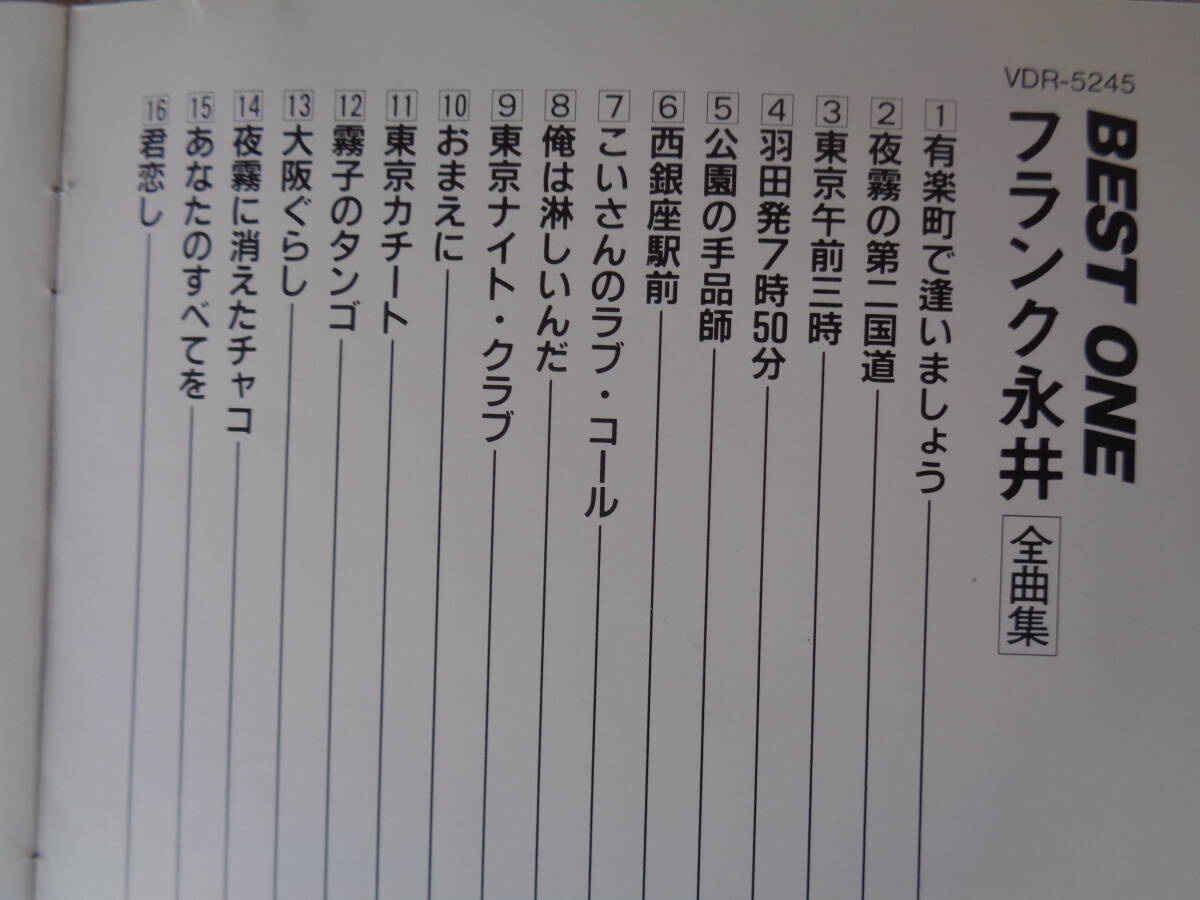 VDR-5245
BEST ONE
フランク永井 全曲集
1 有楽町で逢いましょう
2 夜霧の第二国道
3 東京午前三時
4 羽田発7時50分
5 公園の手品師
6 西銀座駅前
7 こいさんのラブ・コール
8 俺は淋しいんだ
9 東京ナイト・クラブ
10 おまえに
11 東京カチート
12 霧子のタンゴ
13 大阪ぐらし
14 夜霧に消えたチャコ
15 あなたのすべてを
16 君恋し